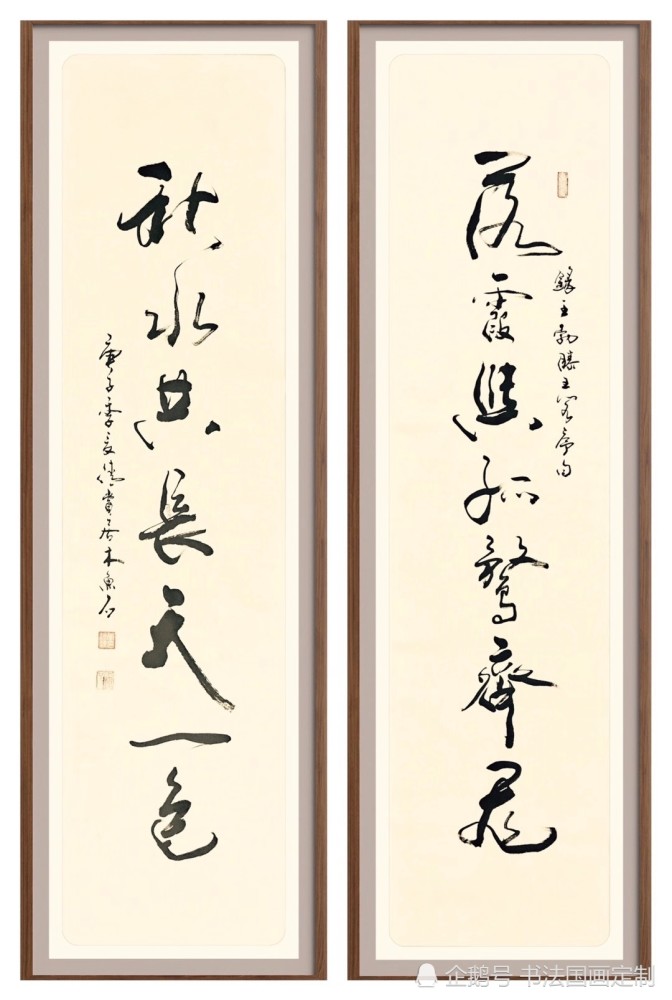 錄王勃滕王閣序句
落霞與孤鶩齊飛
秋水共長天一色
庚子季夏賞居木魚石
企鹅号 书法国画定制